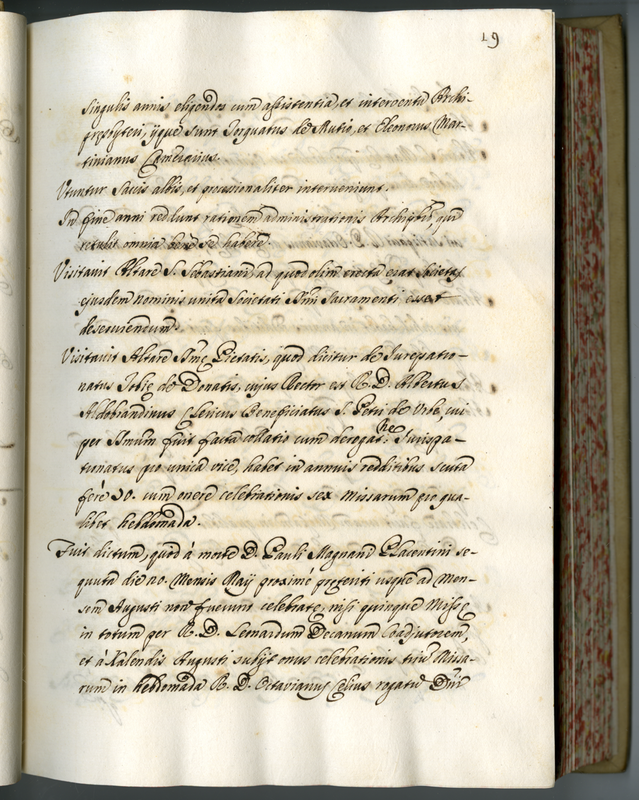 19
singulis annis eligendos cum assistentia, et interventu Archi-
presbyteri, ijque sunt Torquatus de Mutio, et Eleonorus Mar-
tinianus Camerarius.
Utuntur Saccis albis, et processionaliter interveniunt.
In fine anni reddunt rationem administrationis Archipbro, qui
retulit omnia bene se habere.
Visitavit Altare S. Sebastiani, ad quod olim erecta erat Societas
ejusdem nominis unita Societati SSmi Sacramenti esset
deserviendum.
Visitavit Altare SSmę Pietatis, quod dicitur de Jurepatro-
natus de Donatis, cujus Rector est R. D. Albertus
Aldobrandinus Clericus Beneficiatus S. Petri de Urbe, cui
per SSmum fuit facta collatio cum derogatne Jurispa-
tronatus pro unica vice, habet in annuis redditibus scuta
ferè 30. cum onere celebrationis sex Missarum pro qua-
libet hebdomada.
Fuit dictum, quod à morte D. Pauli Magnani Placentini se-
quuta die 20. Mensis Maij proximè pręteriti usque ad Men-
sem Augusti non fuerunt celebratę, nisi quinque Missę
in totum per R. D. Leonardum Decanum Coadjutorem,
et à Kalendis Augusti subijt onus celebrationis trium Missa-
rum in hebdomada R. D. Octavianus Celius rogatu Dni